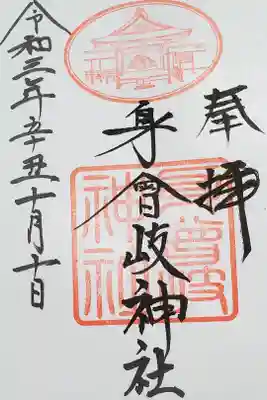 奉拝
身曾岐神社
身曾岐神社
令和三年辛丑十月十日